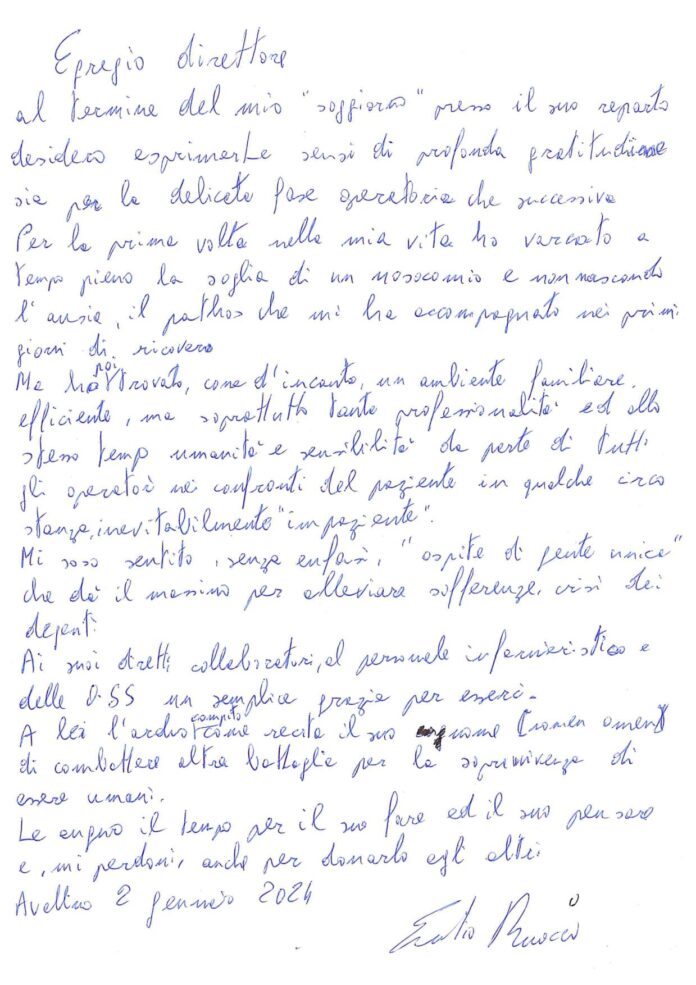 Egregio direttore
al termine del mio "soggiorno" presso il suo reparto
desidero esprimerLe sensi di profonda gratitudine
sia per la delicata fase operatoria che successiva
Per la prima volta nella mia vita ho varcato a
tempo pieno la soglia di un nosocomio e non nascondo
l'ansia, il pathos che mi ha accompagnato nei primi
giorni di ricovero
Ma ho poi trovato, come d'incanto, un ambiente familiare,
efficiente, ma soprattutto tanta professionalità ed allo
stesso temp umanità e sensibilità da parte di tutti
gli operatori nei confronti del paziente in qualche circo
stanza, inevitabilmente "impaziente".
Mi sono sentito, senza enfasi, "ospite di gente unica"
che dà il massimo per alleviare sofferenze, crisi dei
degenti
Ai suoi diretti collaboratori, al personale infermieristico e
delle OSS un semplice grazie per esserci.
A lei l'arduo compito come recita il suo cognome (nomen omen)
di combattere altra battaglia per la sopravvivenza di
essere umani.
Le auguro il tempo per il suo fare ed il suo pensare
e, mi perdoni, anche per donarlo agli altri.
Avellino 2 gennaio 2024